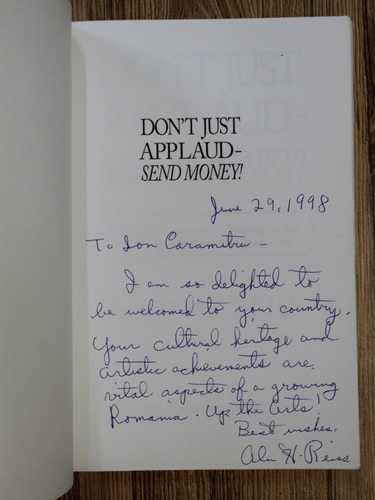 DON'T JUST
APPLAUD–
SEND MONEY!
June 29, 1998
To Ion Caramitru –
I am so delighted to
be welcomed to your country.
Your cultural heritage and
artistic achievements are
vital aspects of a growing
Romania. Up the Arts!
Best wishes,
Alvin H. Reiss